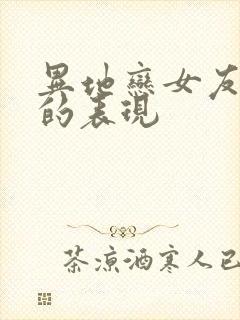 異地戀女友
的表現
茶涼酒寒人已